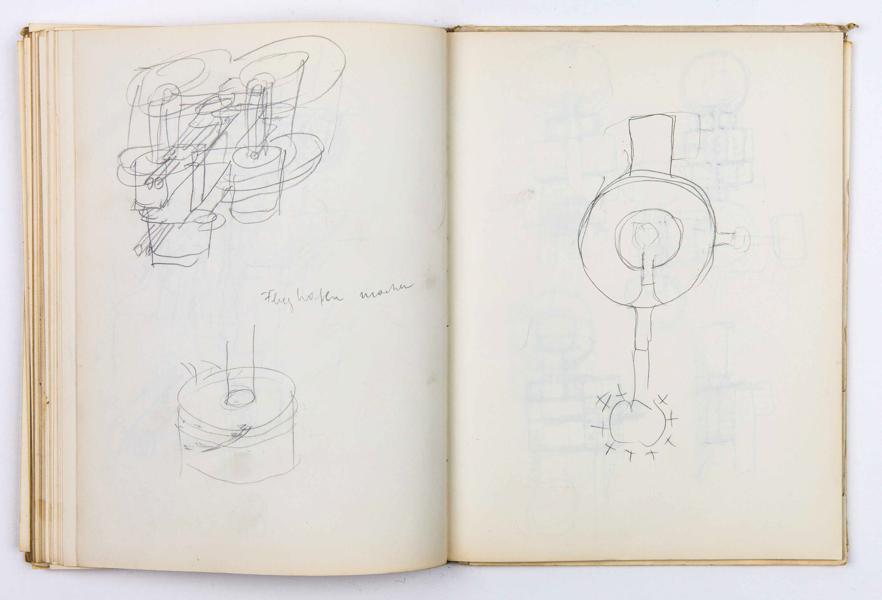 Flughafen machen